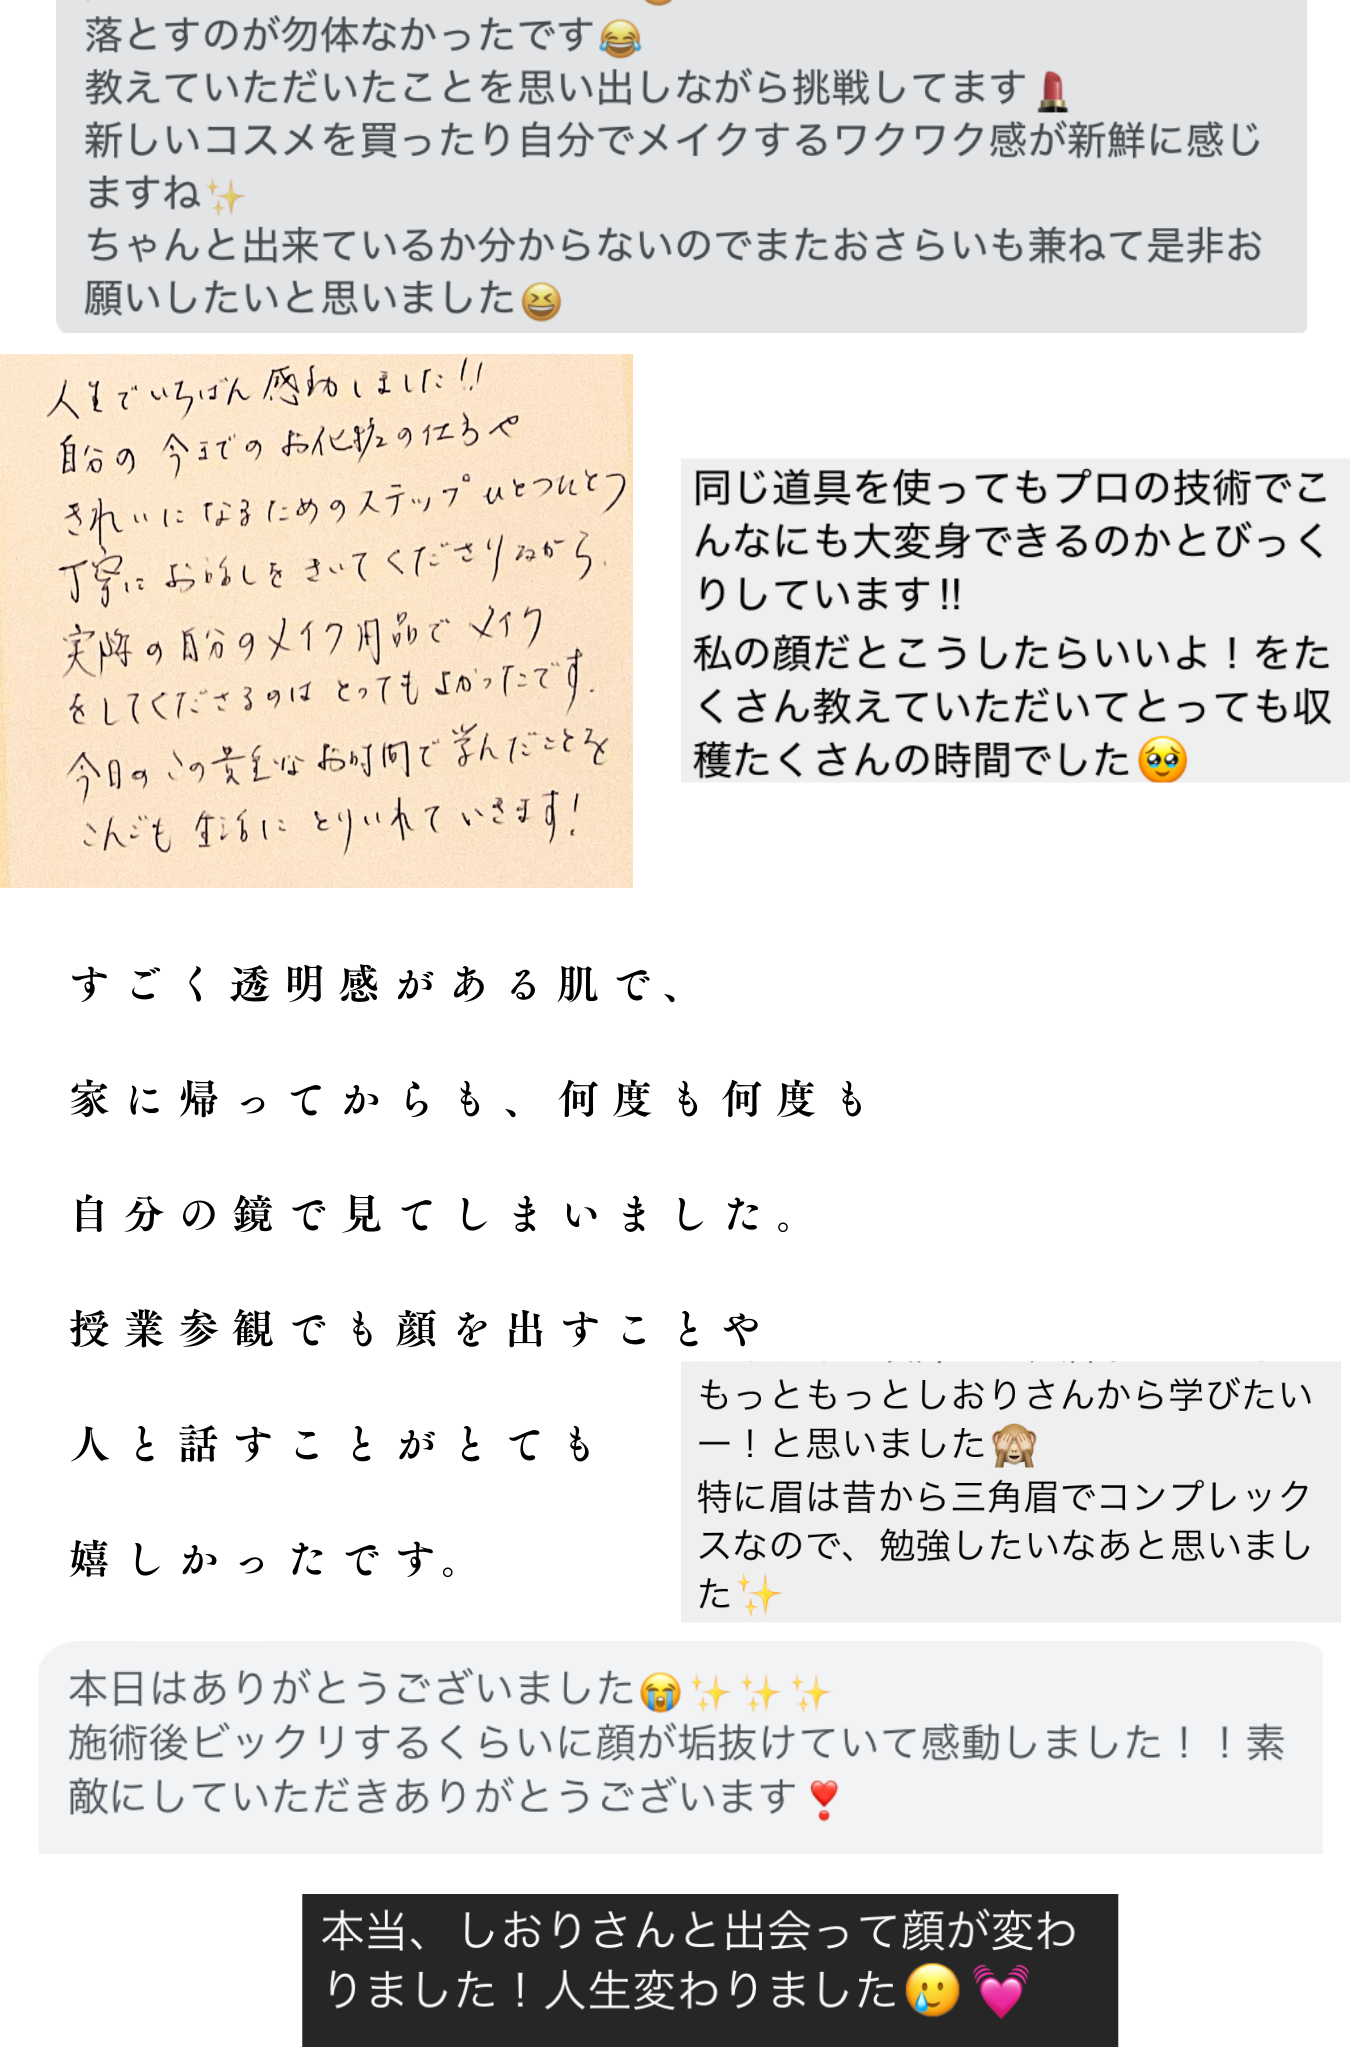 落とすのが勿体なかったです😂
教えていただいたことを思い出しながら挑戦してます💄
新しいコスメを買ったり自分でメイクするワクワク感が新鮮に感じ
ますね✨
ちゃんと出来ているか分からないのでまたおさらいも兼ねて是非お
願いしたいと思いました😆
人生でいちばん感動しました!!
自分の今までのお化粧の仕方や
きれいになるためのステップひとつひとつ
丁寧にお話しをきいてくださりながら、
実際の自分のメイク用品でメイク
をしてくださるのはとってもよかったです.
今日のこの貴重なお時間で学んだことを
こんごも生活にとりいれていきます!
同じ道具を使ってもプロの技術でこ
んなにも大変身できるのかとびっく
りしています‼️
私の顔だとこうしたらいいよ！をた
くさん教えていただいてとっても収
穫たくさんの時間でした🥹
すごく透明感がある肌で、
家に帰ってからも、何度も何度も
自分の鏡で見てしまいました。
授業参観でも顔を出すことや
人と話すことがとても
嬉しかったです。
もっともっとしおりさんから学びたい
ー！と思いました🙈
特に眉は昔から三角眉でコンプレック
スなので、勉強したいなあと思いまし
た✨
本日はありがとうございました😭✨✨✨
施術後ビックリするくらいに顔が垢抜けていて感動しました！！素
敵にしていただきありがとうございます❣️
本当、しおりさんと出会って顔が変わ
りました！人生変わりました🥲💓